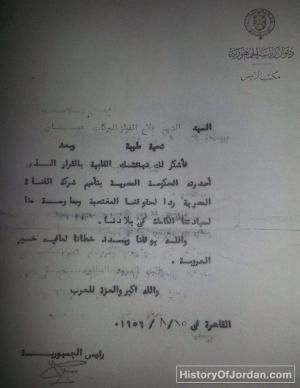 ديوان رئاسة الجمهورية
مكتب الرئيس
السيد الشيخ فلاح الفواز البركات
تحية طيبة وبعد
فأشكر لك تهنئتك القلبية بالقرار الذي
أصدرته الحكومة المصرية بتأميم شركة القناة
المصرية ردا لحقوقنا المغتصبة وممارسة منا
لسيادتنا الكاملة في بلادنا .
والله يوفقنا ويسدد خطانا لما فيه خير
العروبة .
والله أكبر والعزة للعرب
القاهرة في ١٩٥٦/٨/١٥
رئيس الجمهورية
HistoryOfJordan.com